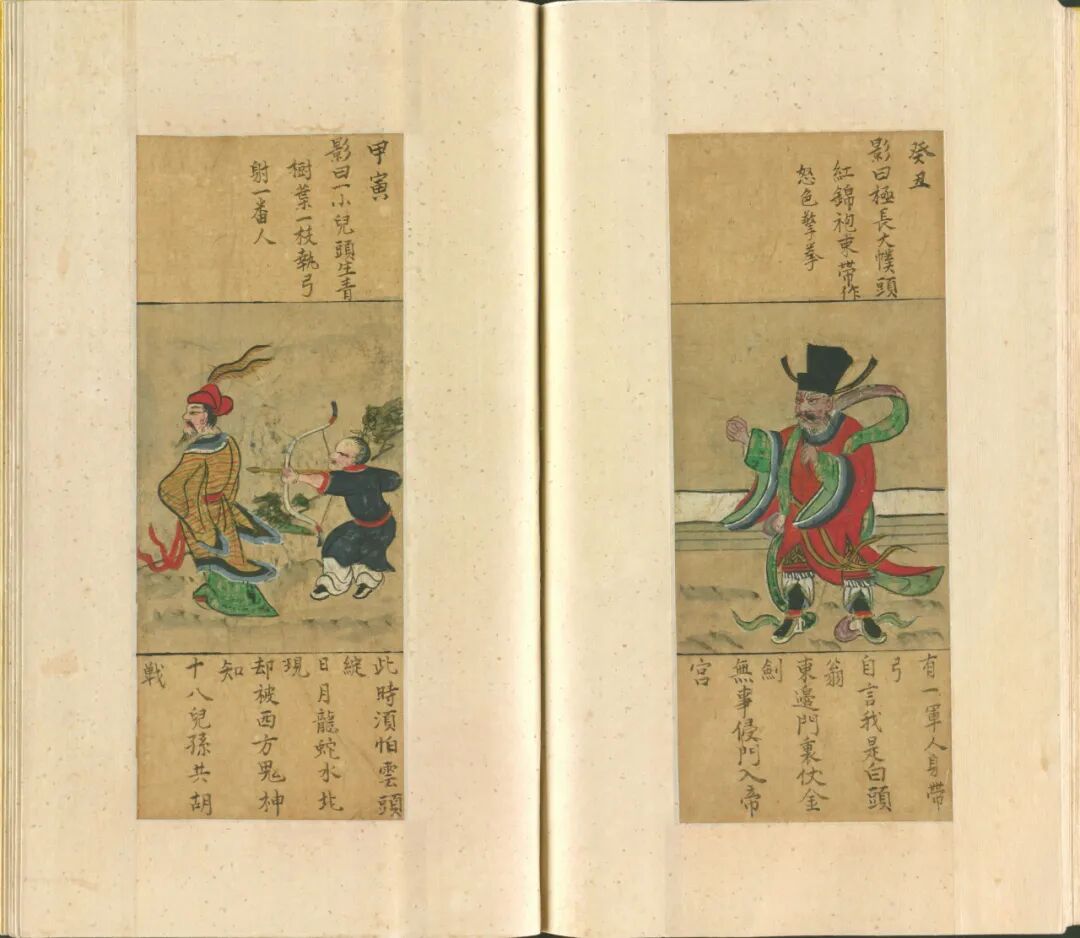 癸丑
影曰極長大幞頭
紅錦袍束帶作
怒色擎拳
有一軍人身帶
弓
自言我是白頭
翁
東邊門裏伏金
劍
無事侵門入帝
宮
甲寅
影曰一小兒頭生青
樹葉一枝執弓
射一番人
此時湏怕雲頭
綻
日月龍蛇水北
現
却被西方鬼神
知
十八兒孫共胡
戰